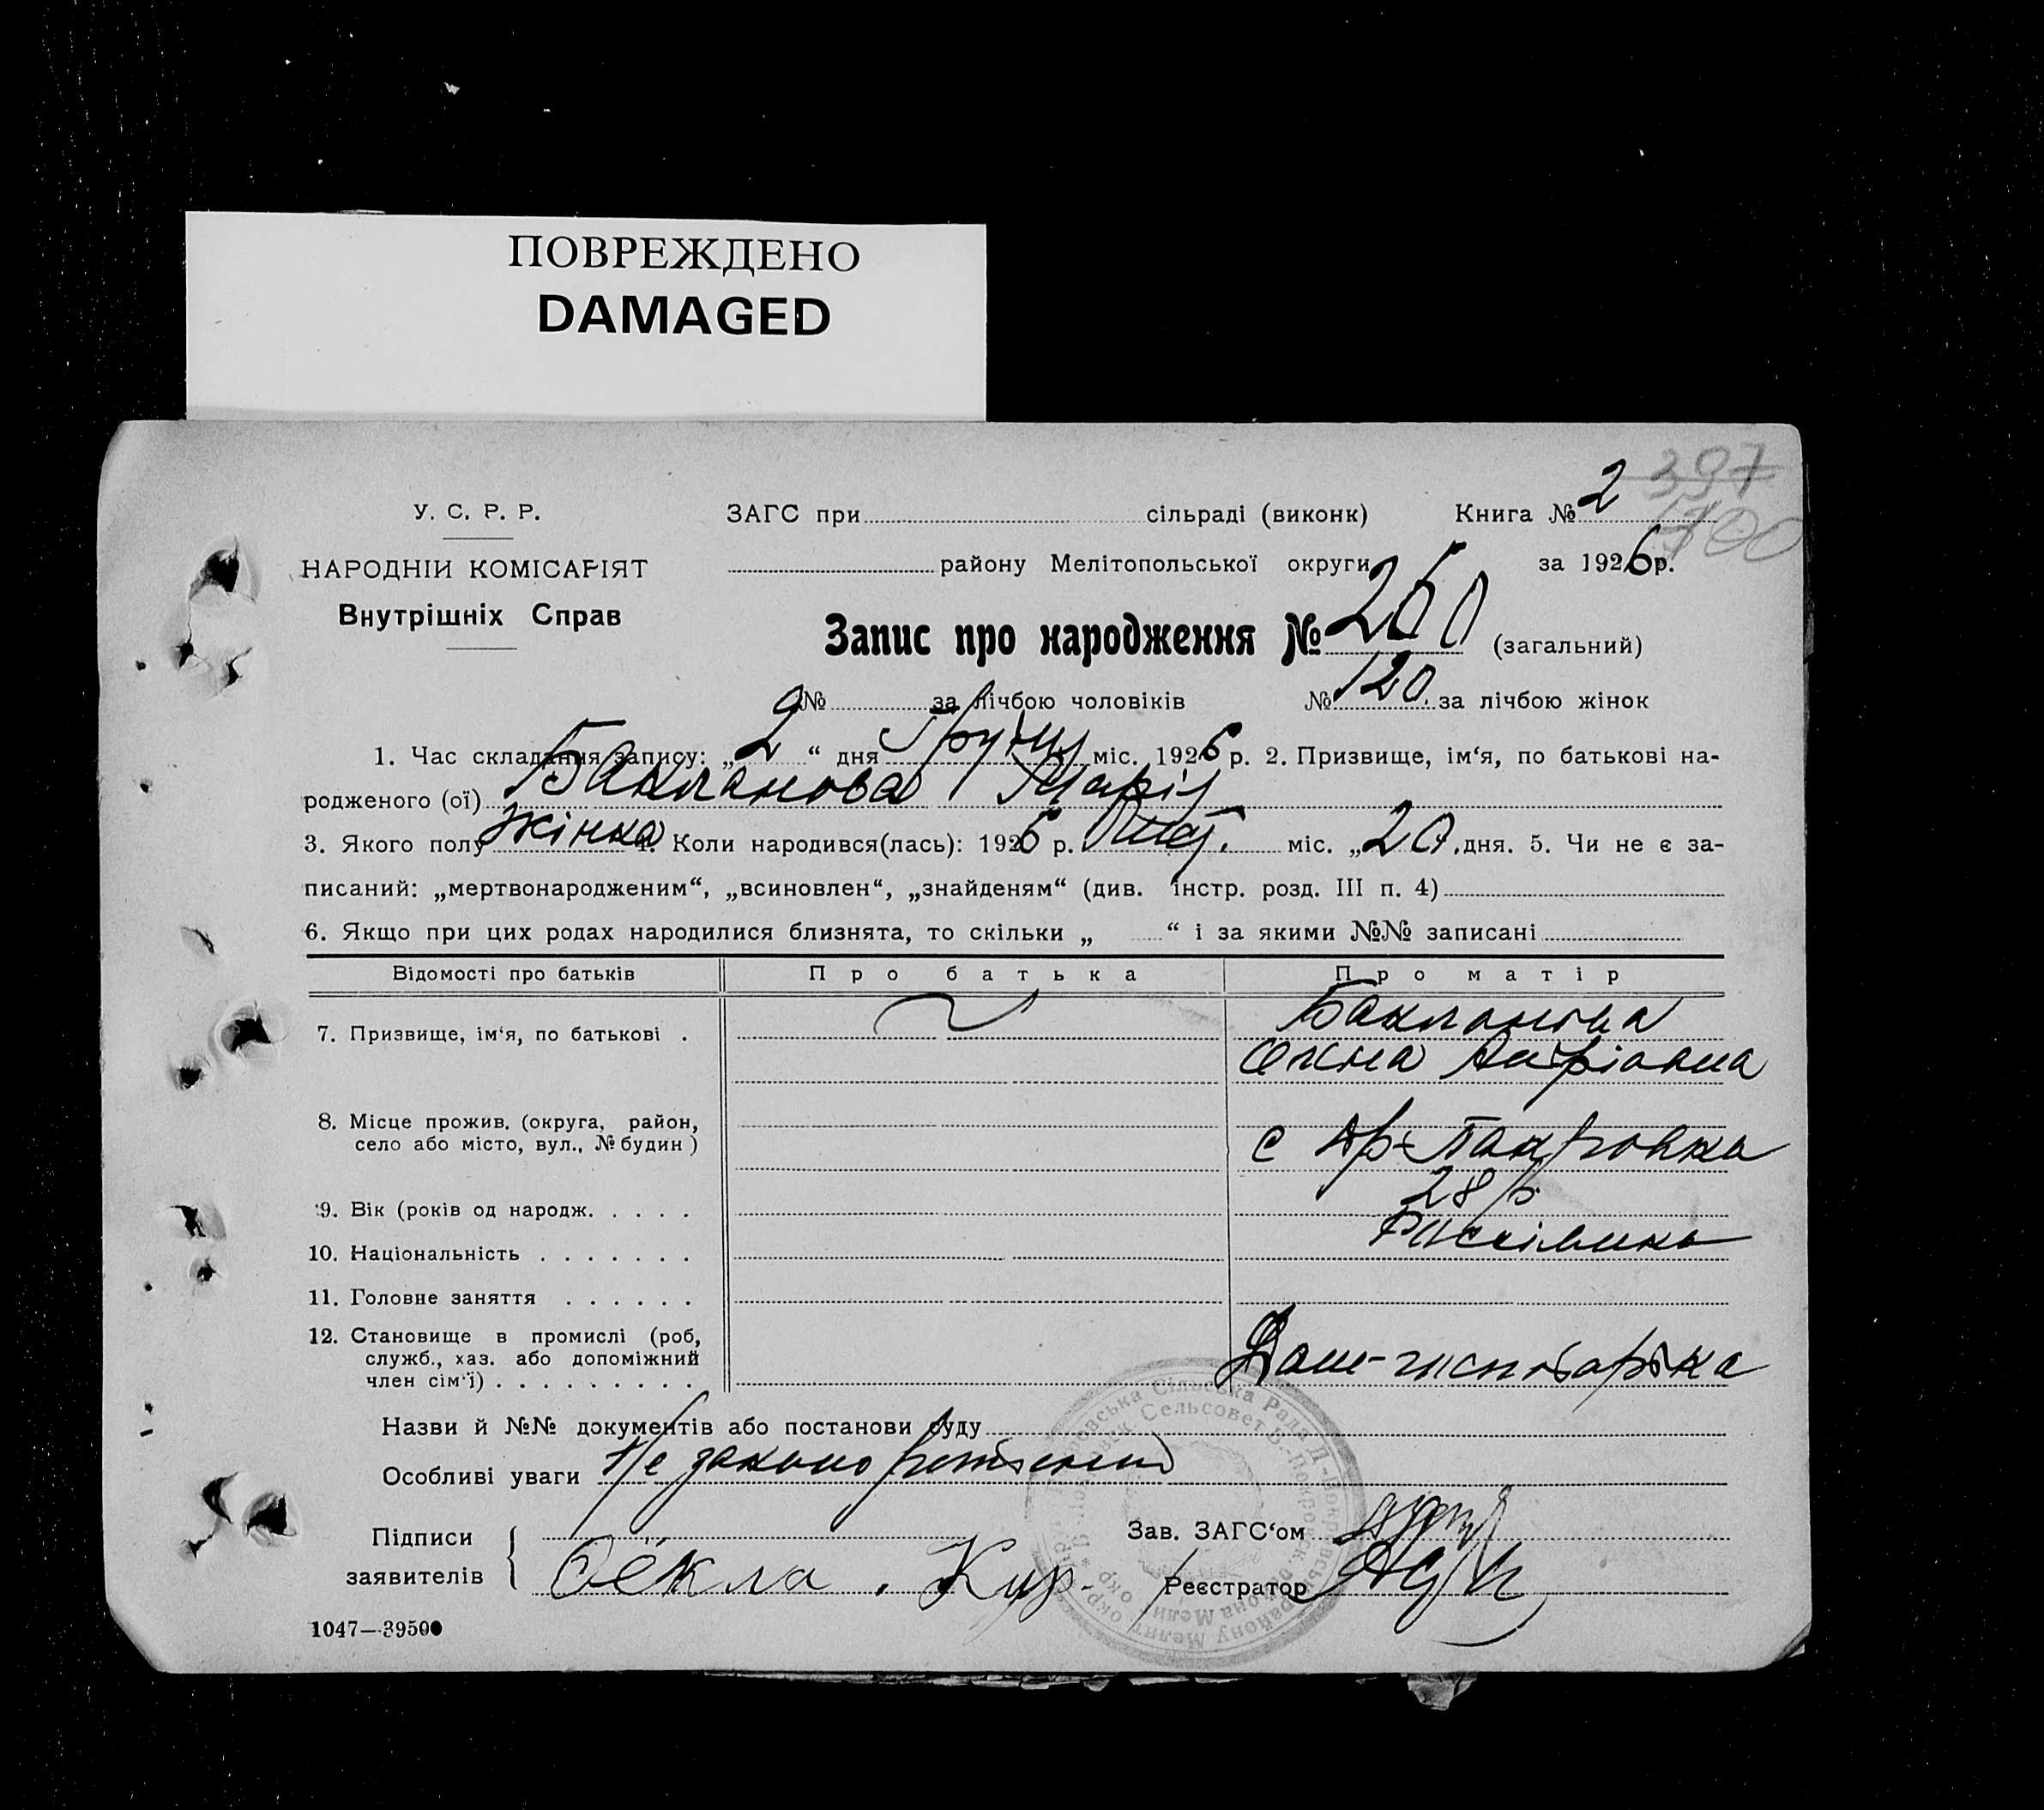 ПОВРЕЖДЕНО
DAMAGED
397
У. С. Р. Р. ЗАГС при сільраді (виконк) Книга № 2
НАРОДНІЙ КОМІСАРІЯТ району Мелітопольської округи за 1926 р.
Внутрішніх Справ
Запис про народження № 260 (загальний)
№ за лічбою чоловіків № 120. за лічбою жінок
1. Час складання запису: „2“ дня Грудня міс. 1926 р. 2. Призвище, ім‘я, по батькові на-
родженого (ої) Бакланова Марія
3. Якого полу жінка 4. Коли народився(лась): 1926 р. міс. „20. дня. 5. Чи не є за-
писаний: „мертвонародженим“, „всиновлен“, „знайденям“ (див. інстр. розд. III п. 4)
6. Якщо при цих родах народилися близнята, то скільки „ “ і за якими №№ записані
Відомості про батьків Про батька Про матір
7. Призвище, ім‘я, по батькові . Бакланова
8. Місце прожив. (округа, район,
село або місто, вул., № будин) с
9. Вік (років од народж. . . . . 28 р
10. Національність . . . . . . .
11. Головне заняття . . . . . .
12. Становище в промислі (роб,
служб., хаз. або допоміжний
член сім‘ї) . . . . . . . . . Дом-господарка
Назви й №№ документів або постанови суду
Особливі уваги Не законо
Підписи
заявителів
Зав. ЗАГС‘ом
Фёкла. Кур-
Реєстратор
1047—39500